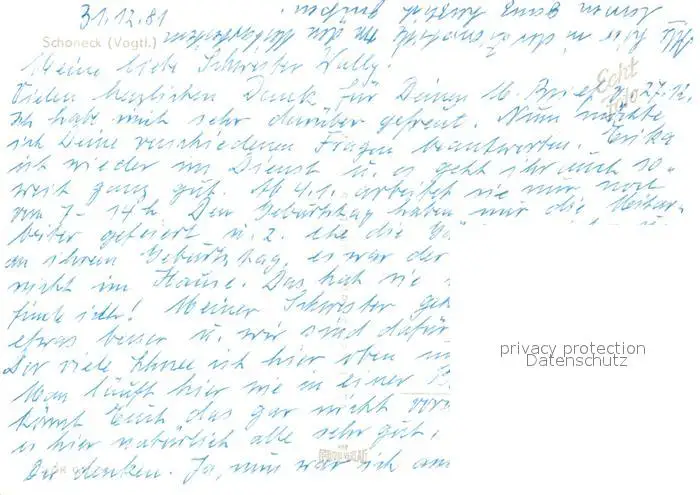 31.12.81
Schöneck (Vogtl.)
Meine liebe Schwester Wally!
Vielen herzlichen Dank für Deinen lb. Brief v. 27.12.
Ich habe mich sehr darüber gefreut. Nun möchte
ich Deine verschiedenen Fragen beantworten. Erika
ist wieder im Dienst u. es geht ihr auch so-
weit ganz gut. Ab 4.1. arbeitet sie nur noch
von 7 - 14 h. Den Geburtstag haben nur die Mitar-
beiter gefeiert u. z. ehe die
an ihrem Geburtstag, es war der
nicht im Hause. Das hat sie
finde ich! Meiner Schwester geh
etwas besser u. wir sind dafür
Der viele Schnee ist hier oben
Man läuft hier wie in einer
könnt Euch das gar nicht vors
es hier natürlich alle sehr gut,
denken. Ja, nun war ich am
Echt
Foto
privacy protection
Datenschutz